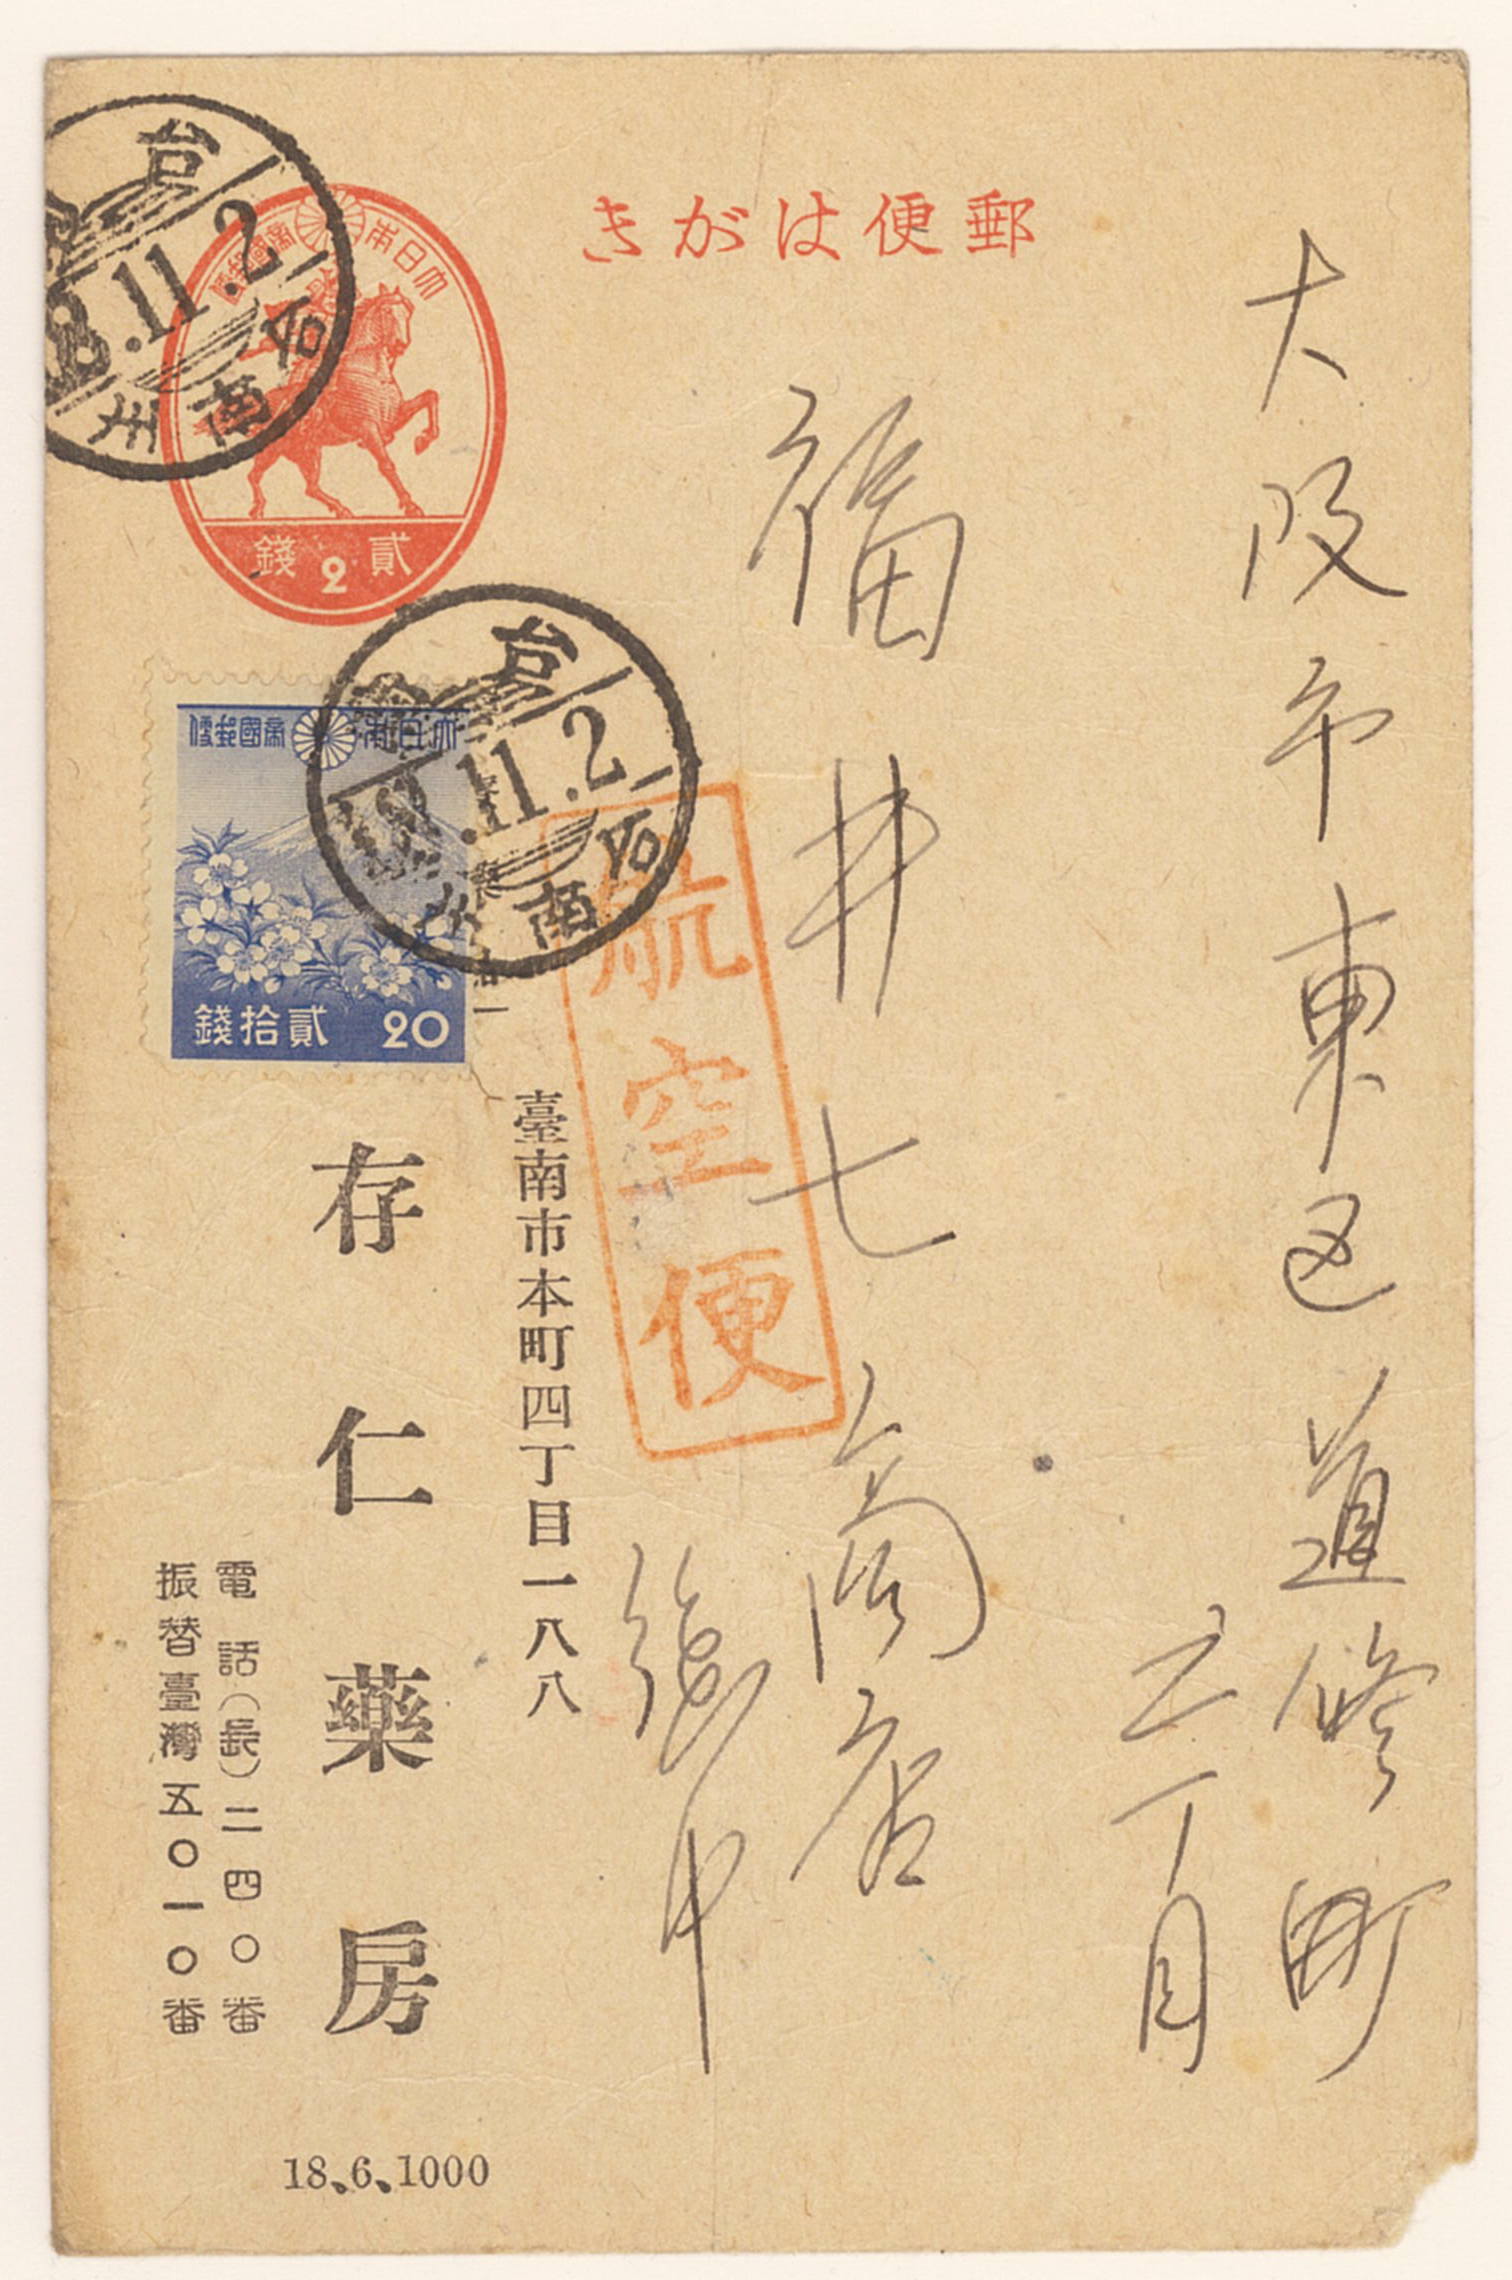 郵便はがき
大阪市東区道修町
三丁目
福井七商店
御中
航空便
大日本帝國郵便
貳錢
2
大日本帝國郵便
貳拾錢 20
台南
11.2
台南
11.2
臺南市本町四丁目一八八
存仁藥房
電話(長)二四〇番
振替臺灣五〇一〇番
18.6.1000